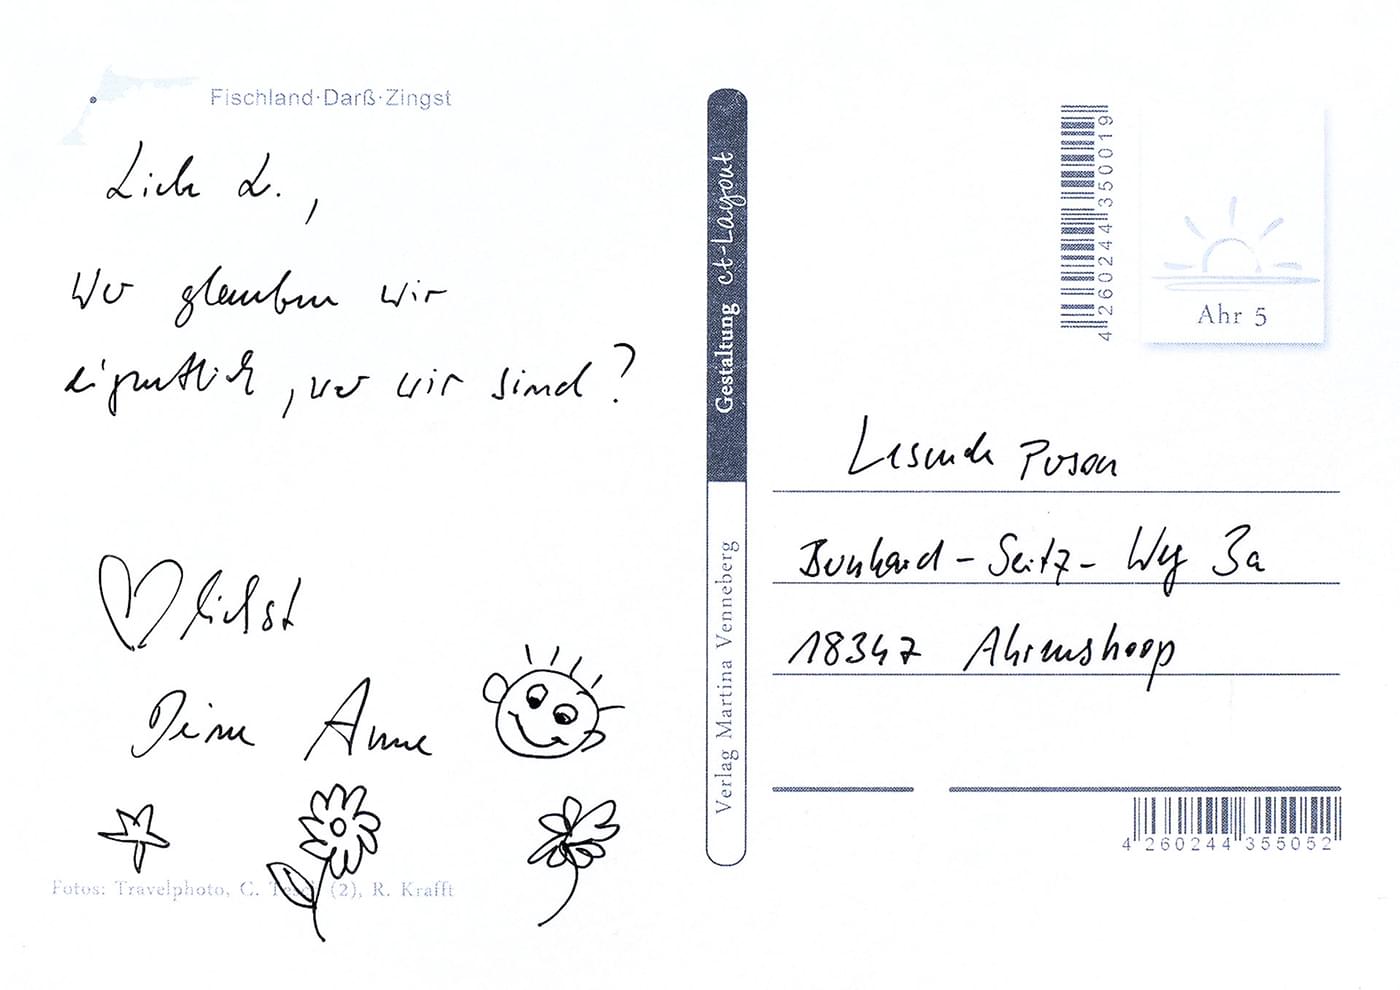 Fischland·Darß·Zingst
Liebe L.,
Wer glauben wir
eigentlich, wer wir sind?
lichst
Deine Anne
Fotos: Travelphoto, C. (2), R. Krafft
Gestaltung ct-Layout
Verlag Martina Venneberg
4 260244 350019
Ahr 5
Lesende Person
Bernhard-Seitz-Weg 3a
18347 Ahrenshoop
4 260244 355052